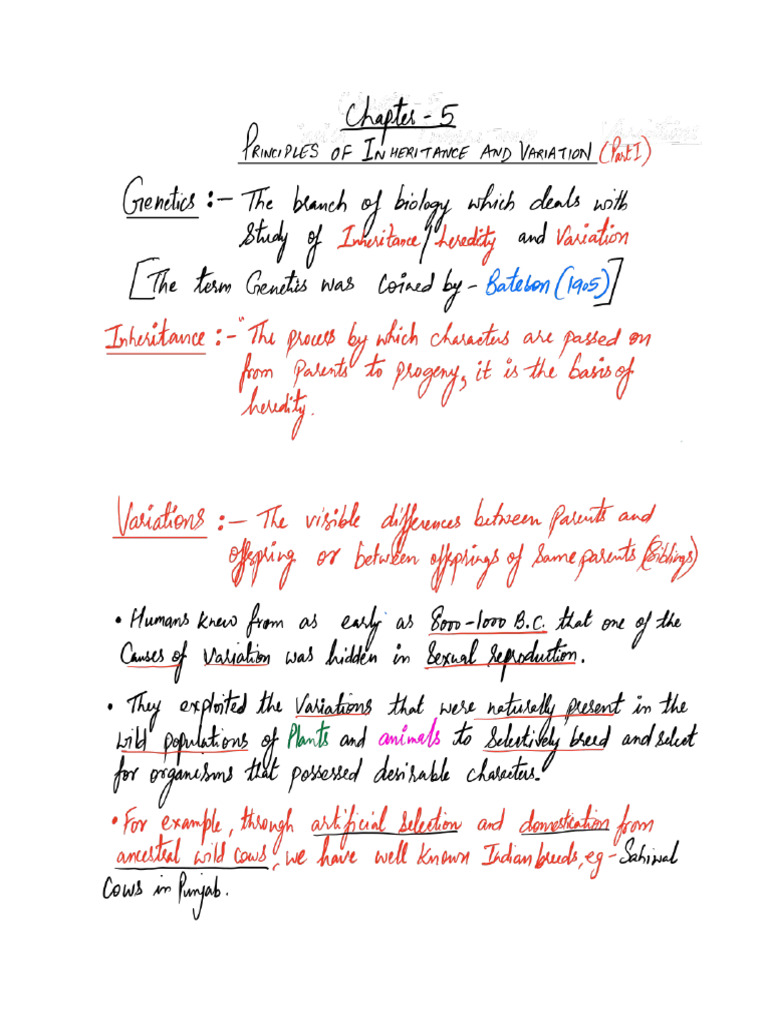 Chapter - 5
PRINCIPLES OF INHERITANCE AND VARIATION (Part I)
Genetics :- The branch of biology which deals with
Study of Inheritance/heredity and Variation
[The term Genetics was coined by - Bateson (1905)]
Inheritance :- "The process by which characters are passed on
from Parents to progeny, it is the basis of
heredity.
Variations :- The visible differences between Parents and
offspring or between offsprings of Same parents (Siblings)
• Humans knew from as early as 8000-1000 B.C. that one of the
Causes of Variation was hidden in Sexual reproduction.
• They exploited the Variations that were naturally present in the
wild populations of Plants and animals to Selectively breed and select
for organisms that possessed desirable characters.
• For example, through artificial selection and domestication from
ancestral wild cows, we have well known Indian breeds, eg - Sahiwal
Cows in Punjab.